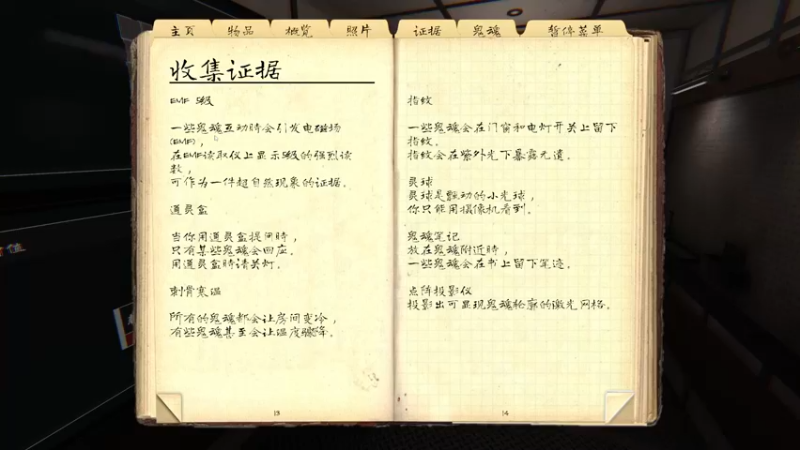 主页 物品 概览 照片 证据 鬼魂 暂停菜单
收集证据
EMF 5级
一些鬼魂互动时会引发电磁场
(EMF)，
在EMF读取仪上显示5级的强烈读
数，
可作为一件超自然现象的证据。
通灵盒
当你用通灵盒提问时，
只有某些鬼魂会回应。
用通灵盒时请关灯。
刺骨寒温
所有的鬼魂都会让房间变冷，
有些鬼魂甚至会让温度骤降。
13
指纹
一些鬼魂会在门窗和电灯开关上留下
指纹。
指纹会在紫外光下暴露无遗。
灵球
灵球是飘动的小光球，
你只能用摄像机看到。
鬼魂笔记
放在鬼魂附近时，
一些鬼魂会在书上留下笔迹。
点阵投影仪
投影出可显现鬼魂轮廓的激光网格。
14